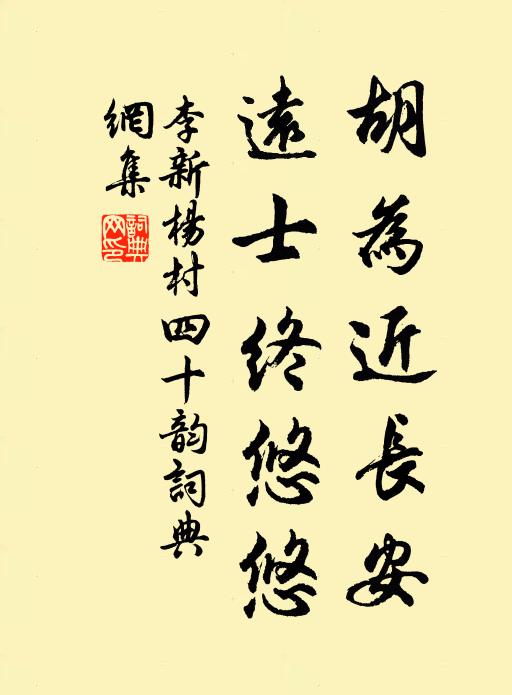 胡為近長安
遠士終悠悠
李新楊村四十韵詞典
網集
詞典
网印